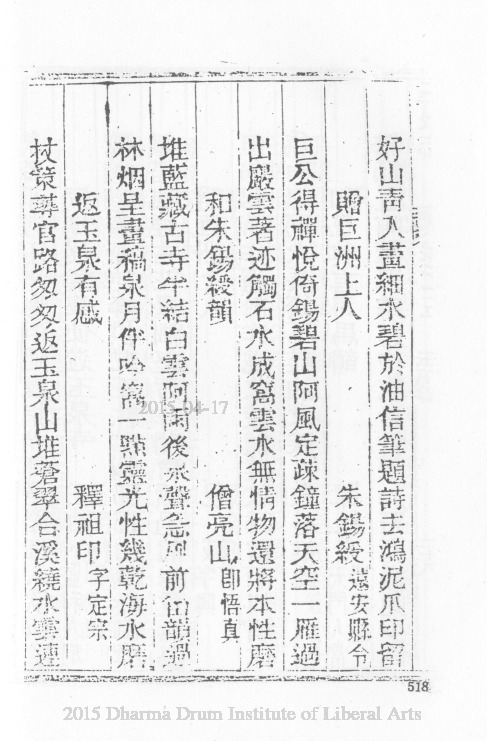 好山靑入畫細水碧於油信筆題詩去鴻泥爪印留
贈巨洲上人 朱錫綬 遠安縣令
巨公得禪悅倚錫碧山阿風定疎鐘落天空一雁過
出巖雲著迹觸石水成窩雲水無情物還將本性磨
和朱錫綬韻 僧亮山 卽悟真
堆藍藏古寺半結白雲阿雨後泉聲急風前笛韻過
林烟呈畫稿泉月伴吟窩一點靈光性幾乾海水磨
返玉泉有感 釋祖印 字定宗
杖策尋官路匆匆返玉泉山堆蒼翠合溪繞水雲連
518
2015-04-17
2015 Dharma Drum Institute of Liberal Arts